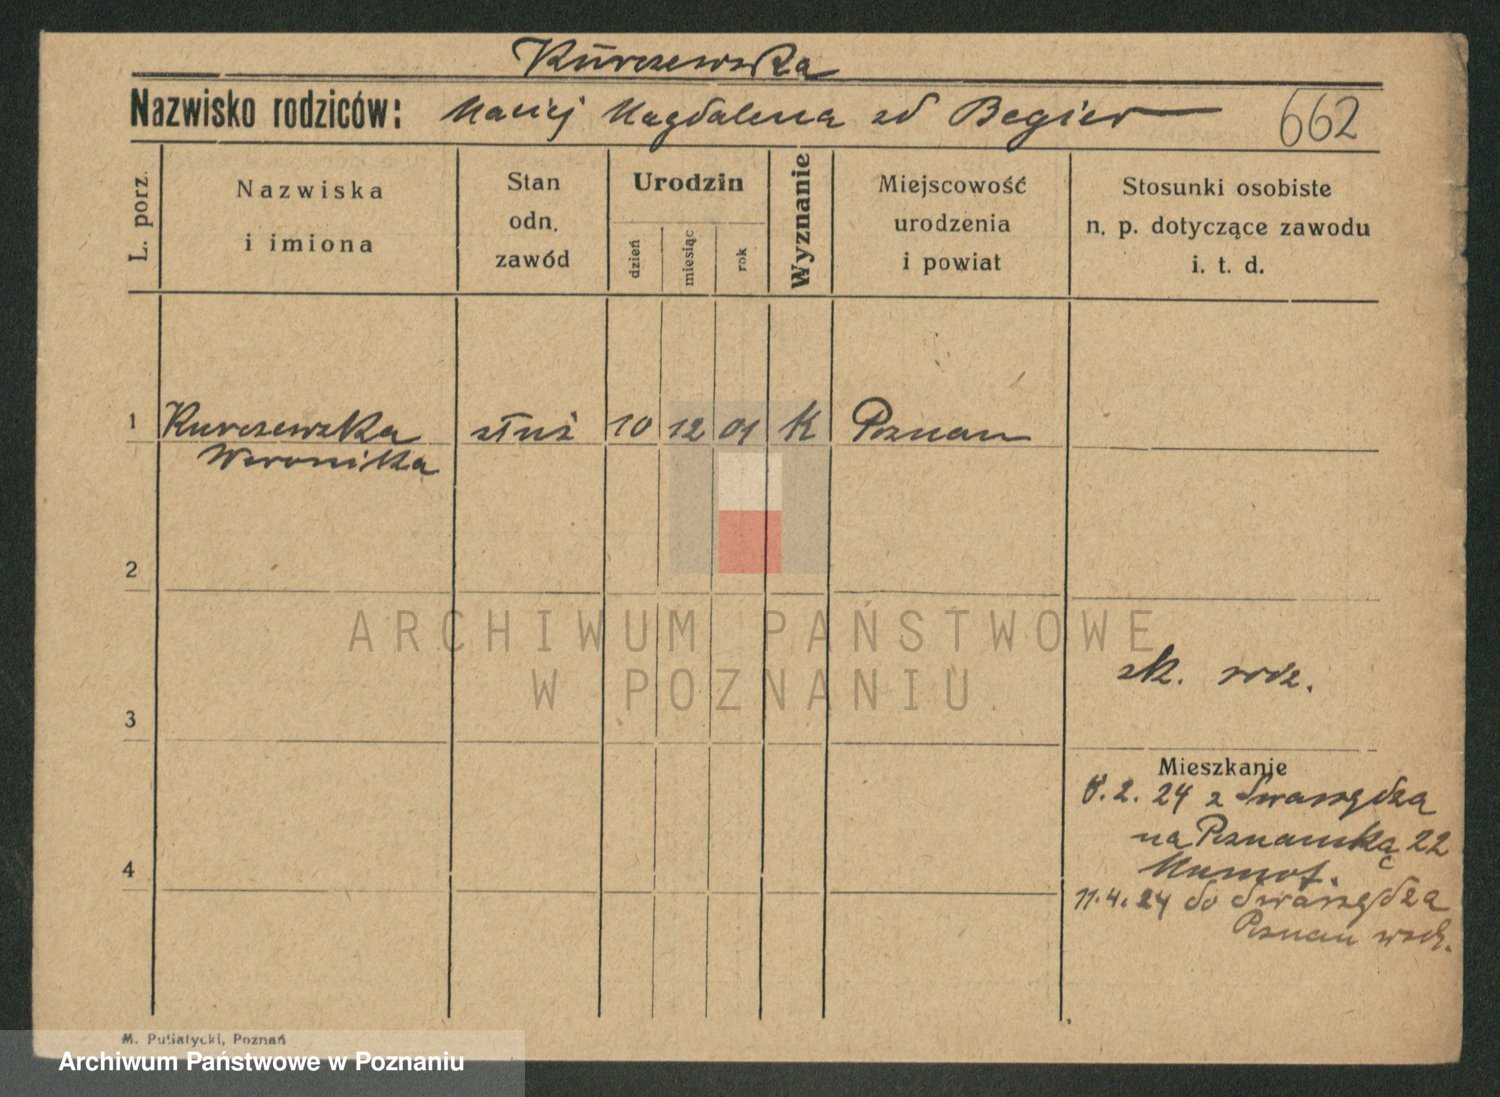 Kurczewska
Nazwisko rodziców: Maciej Magdalena zd Begier 662
L. porz.
Nazwiska
i imiona
Stan
odn.
zawód
Urodzin
dzień
miesiąc
rok
Wyznanie
Miejscowość
urodzenia
i powiat
Stosunki osobiste
n. p. dotyczące zawodu
i. t. d.
1 Kurczewska służ 10 12 01 K Poznan
Weronika
2
ARCHIWUM PAŃSTWOWE
W POZNANIU
zk. rodz.
3
Mieszkanie
8.2.24 z Swarzędza
na Poznanską 22
4
11.4.24 do Swarzędza
Poznan wsch.
M. Putiatycki, Poznań
Archiwum Państwowe w Poznaniu